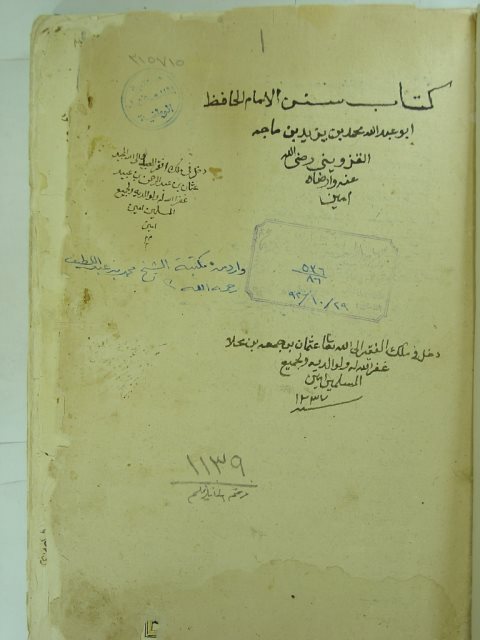 ١
٢١٥٧١٥
كتاب سنن الامام الحافظ
ابو عبد الله محمد بن يزيد بن ماجه
القزويني رضي الله
عنه وارضاه
امين
دخل في ملك افقر العبيد
عثمان بن عبد الرحمن بن عبيد
غفر الله له ولوالديه ولجميع
المسلمين امين
امين
وارد من مكتبة الشيخ محمد بن عبد اللطيف
رحمه الله
٥٣٦
٨٦
٩٢/١٠/٢٩
دخل في ملك الفقير الى الله تعالى عثمان بن جمعه بن
غفر الله له ولوالديه ولجميع
المسلمين امين
١٢٣٧
١١٣٩